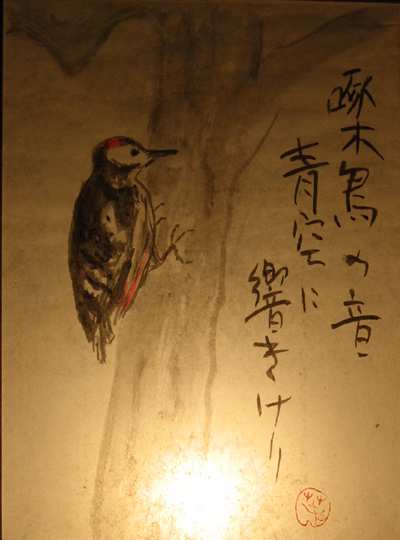 啄木鳥の音
青空に
響きけり